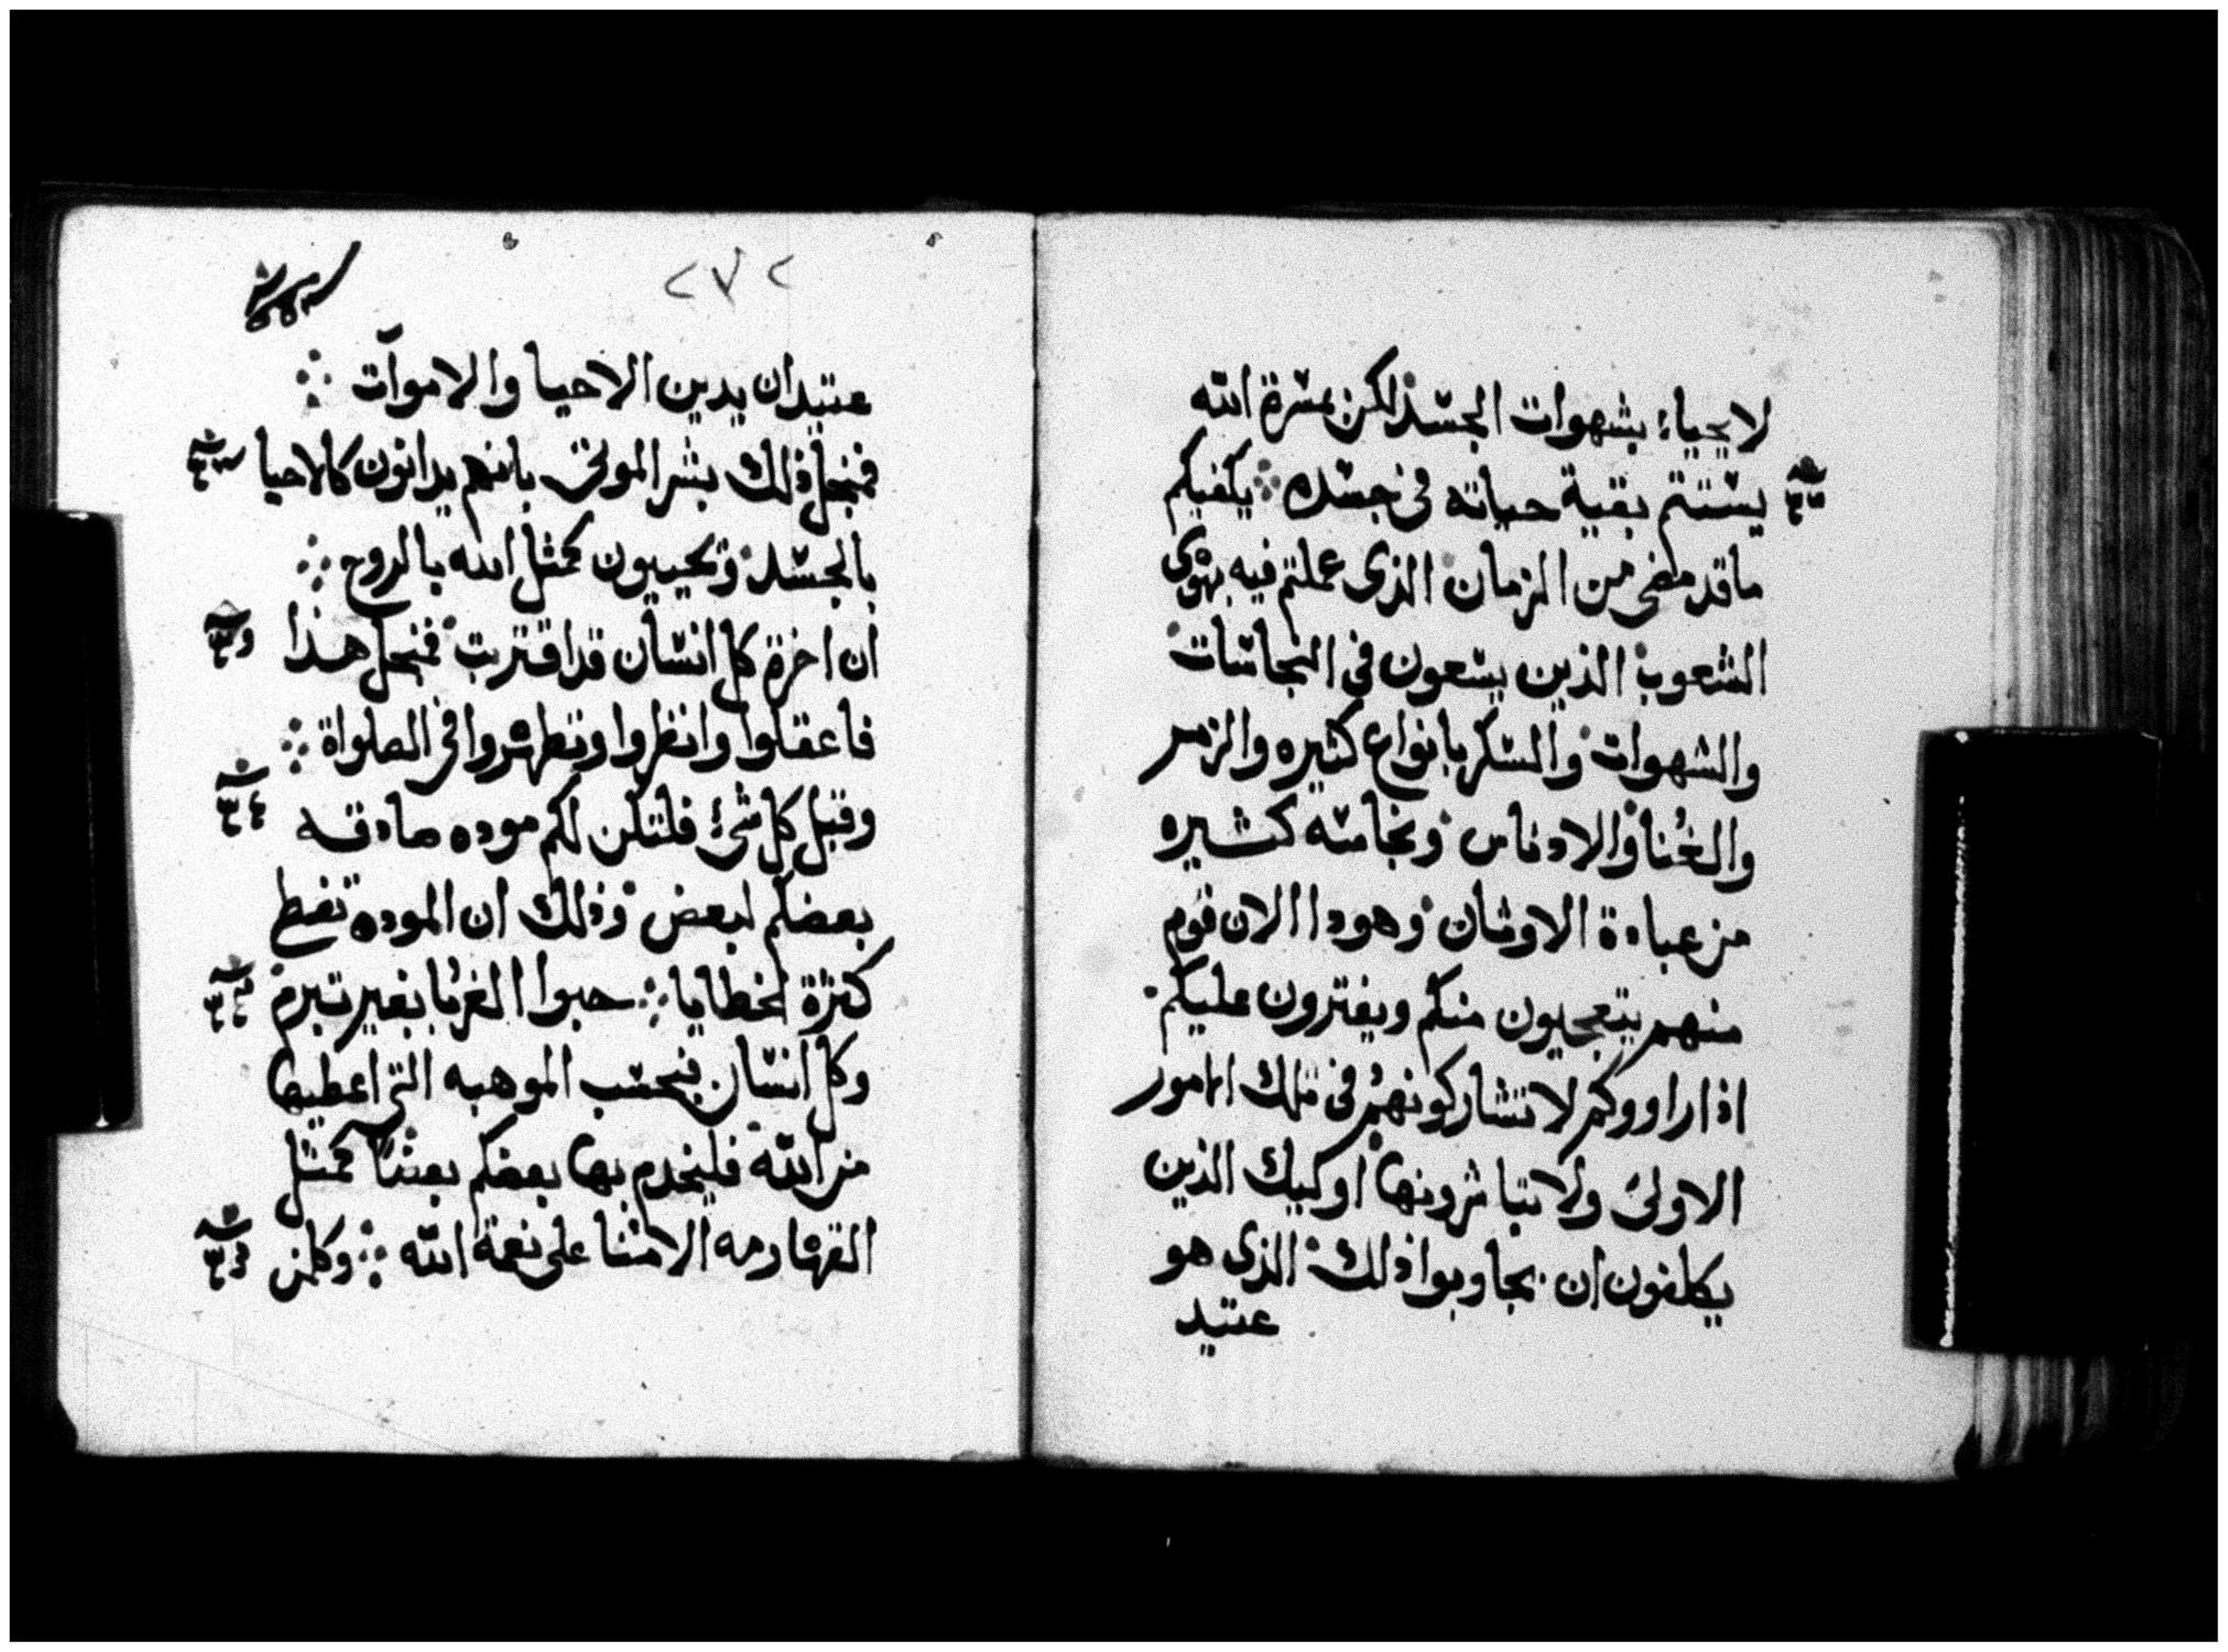 لايحياء بشهوات الجسد لكن بمسرة الله
يستتم بقية حياته في جسده ܀ يكفيكم
ما قد مضى من الزمان الذي عملتم فيه بهوى
الشعوب الذين يسعون في النجاسات
والشهوات والسكر بانواع كثيره والزمر
والغنا والادناس ونجاسه كثيره
من عبادة الاوثان وهودا الان قوم
منهم يتعجبون منكم ويفترون عليكم
اذا راووكم لا تشاركونهم في تلك الامور
الاولى ولا تباشرونها اوليك الذين
يكلفون ان يجاوبوا ذلك الذي هو
عتيد
٢٧٢
عتيد ان يدين الاحيا والاموات ܀
فنجل ذلك بشر الموتى بانهم يدانون كالاحيا
بالجسد وتحييون كمثل الله بالروح ܀
ان اخرة كل انسان قد اقتربت فنجل هذا
فاعقلوا وانظروا وتطهروا في الصلواة ܀
وقبل كل شئ فلتكن لكم موده صادقه
بعضكم لبعض وذلك ان الموده تغطى
كثرة الخطايا ܀ حبوا الغربا بغير تبرم
وكل انسان بحسب الموهبه التي اعطيها
من الله فليخدم بها بعضكم بعضا كمثل
القهارمه الامنا على نعمة الله ܀ وكلمن